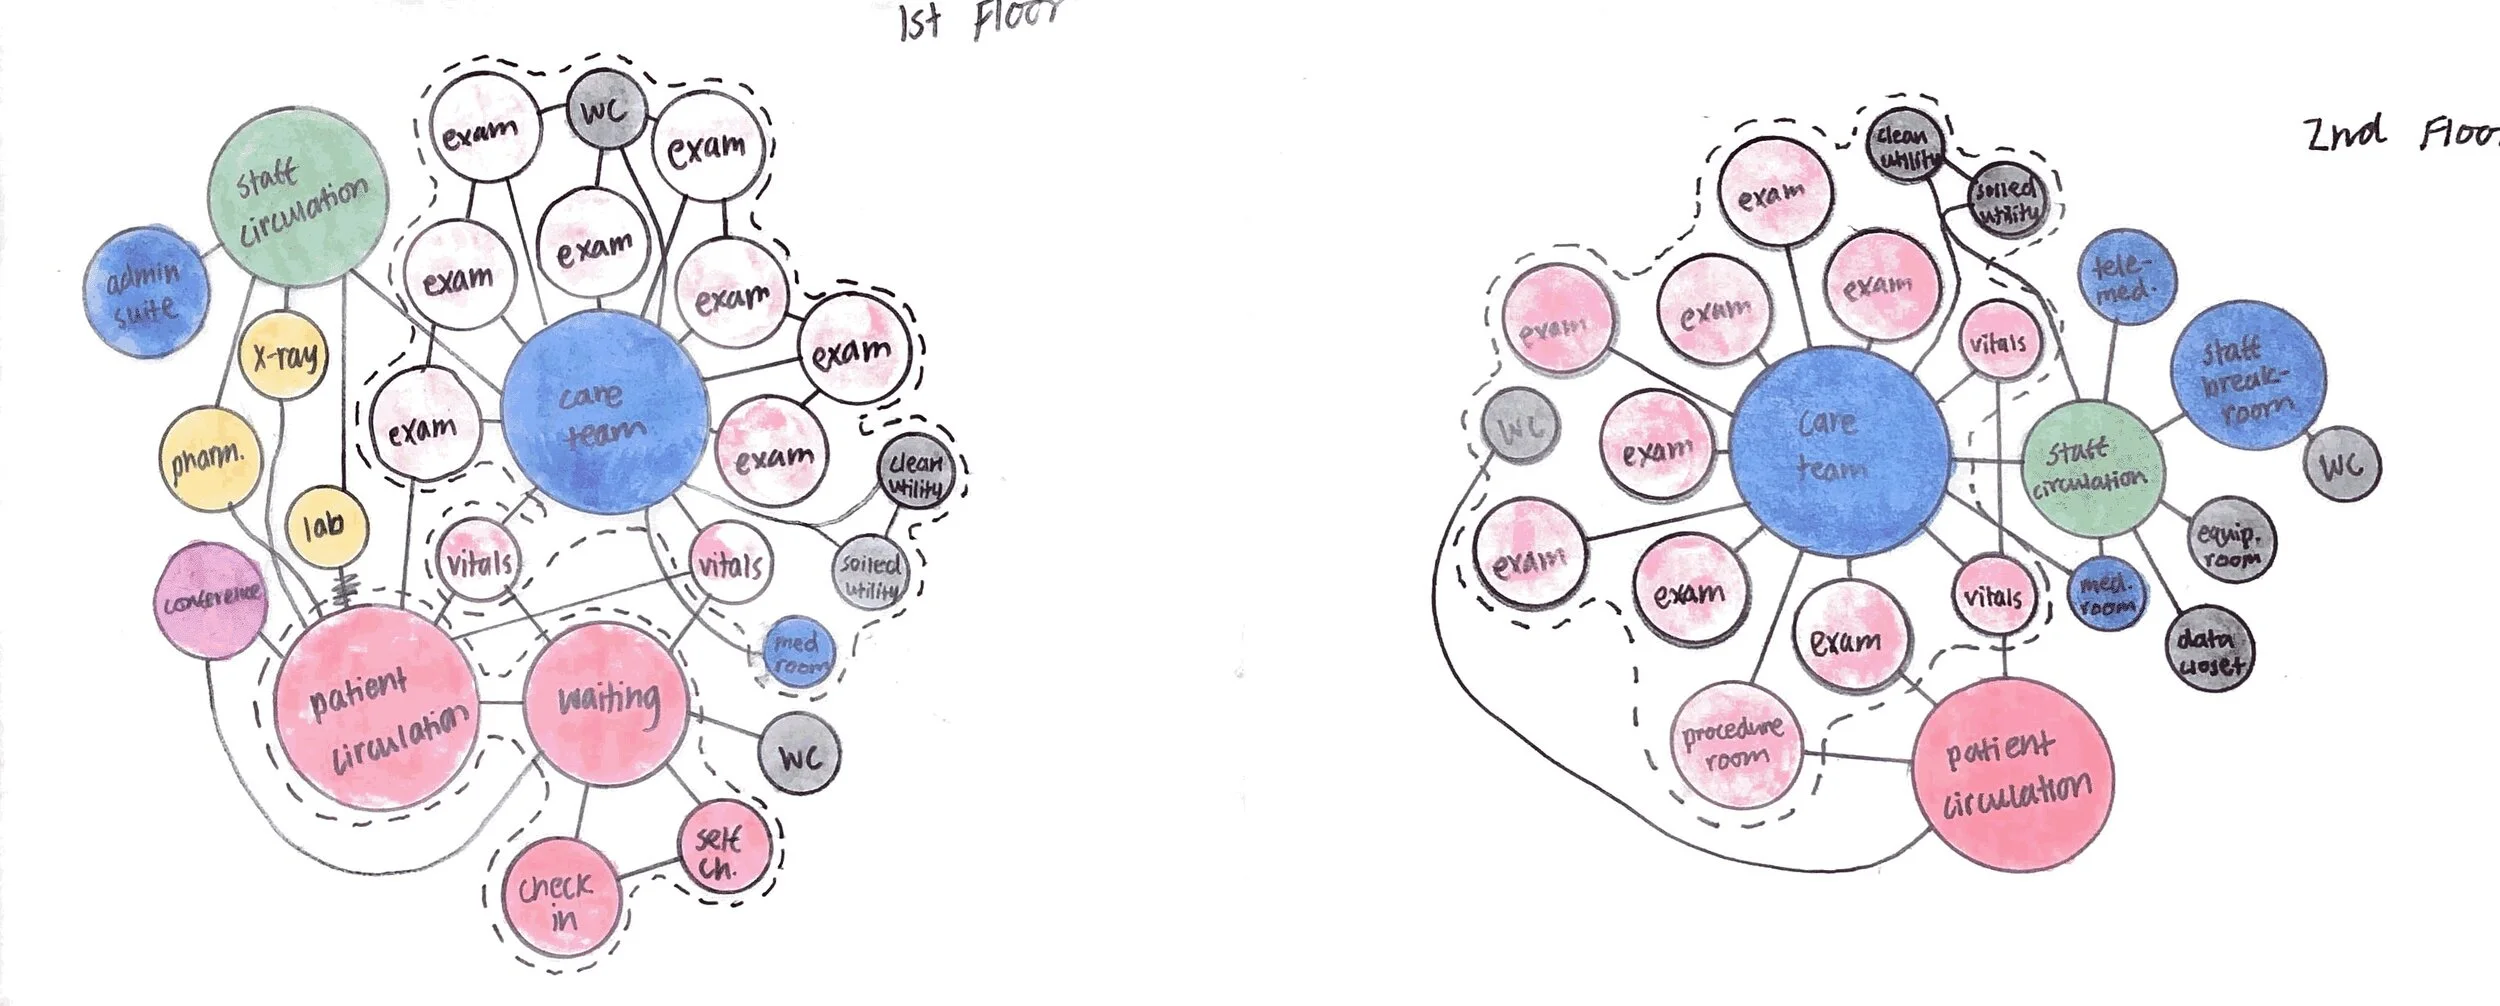 1st Floor
exam
WC
exam
staff
circulation
exam
exam
exam
admin
suite
x-ray
exam
care
team
exam
pharm.
exam
clean
utility
lab
vitals
vitals
soiled
utility
conference
med
room
patient
circulation
waiting
WC
self
ch.
check
in
2nd Floor
clean
utility
soiled
utility
exam
exam
tele-
med.
exam
exam
vitals
staff
break-
room
WC
exam
care
team
staff
circulation
WC
exam
exam
equip.
room
vitals
med.
room
exam
data
closet
procedure
room
patient
circulation